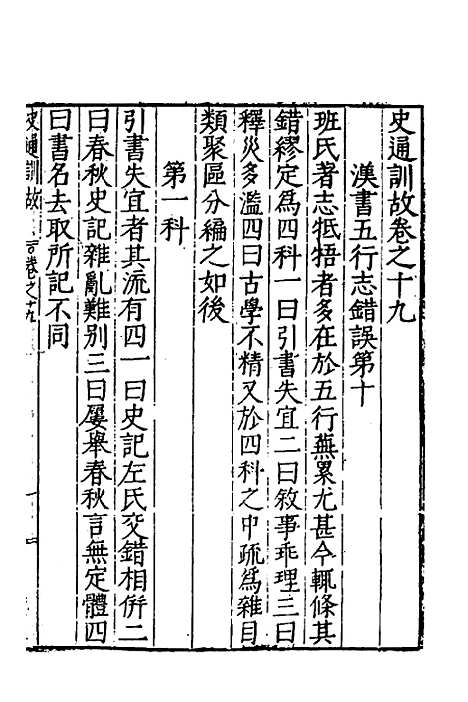 史通訓故卷之十九
漢書五行志錯誤第十
班氏著志牴牾者多在於五行蕪累尤甚今輒條其
錯繆定爲四科一曰引書失宜二曰敘事乖理三曰
釋災多濫四曰古學不精又於四科之中疏爲雜目
類聚區分編之如後
第一科
引書失宜者其流有四一曰史記左氏交錯相併二
曰春秋史記雜亂難別三曰屢舉春秋言無定體四
曰書名去取所記不同
史通訓故 卷之十九 一